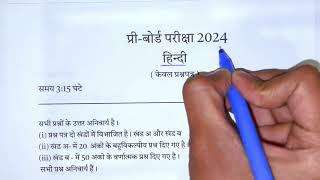 प्री-बोर्ड परीक्षा 2024
हिन्दी
( केवल प्रश्नपत्र )
समय 3:15 घंटे
सभी प्रश्नों के उत्तर अनिवार्य है ।
(i) प्रश्न पत्र दो खंडों में विभाजित है। खंड अ और खंड ब
(ii) खंड अ- में 20 अंको के बहुविकल्पीय प्रश्न दिए गए है
(iii) खंड ब - में 50 अंको के वर्णात्मक प्रश्न दिए गए है ।
सभी प्रश्न अनिवार्य हैं ।